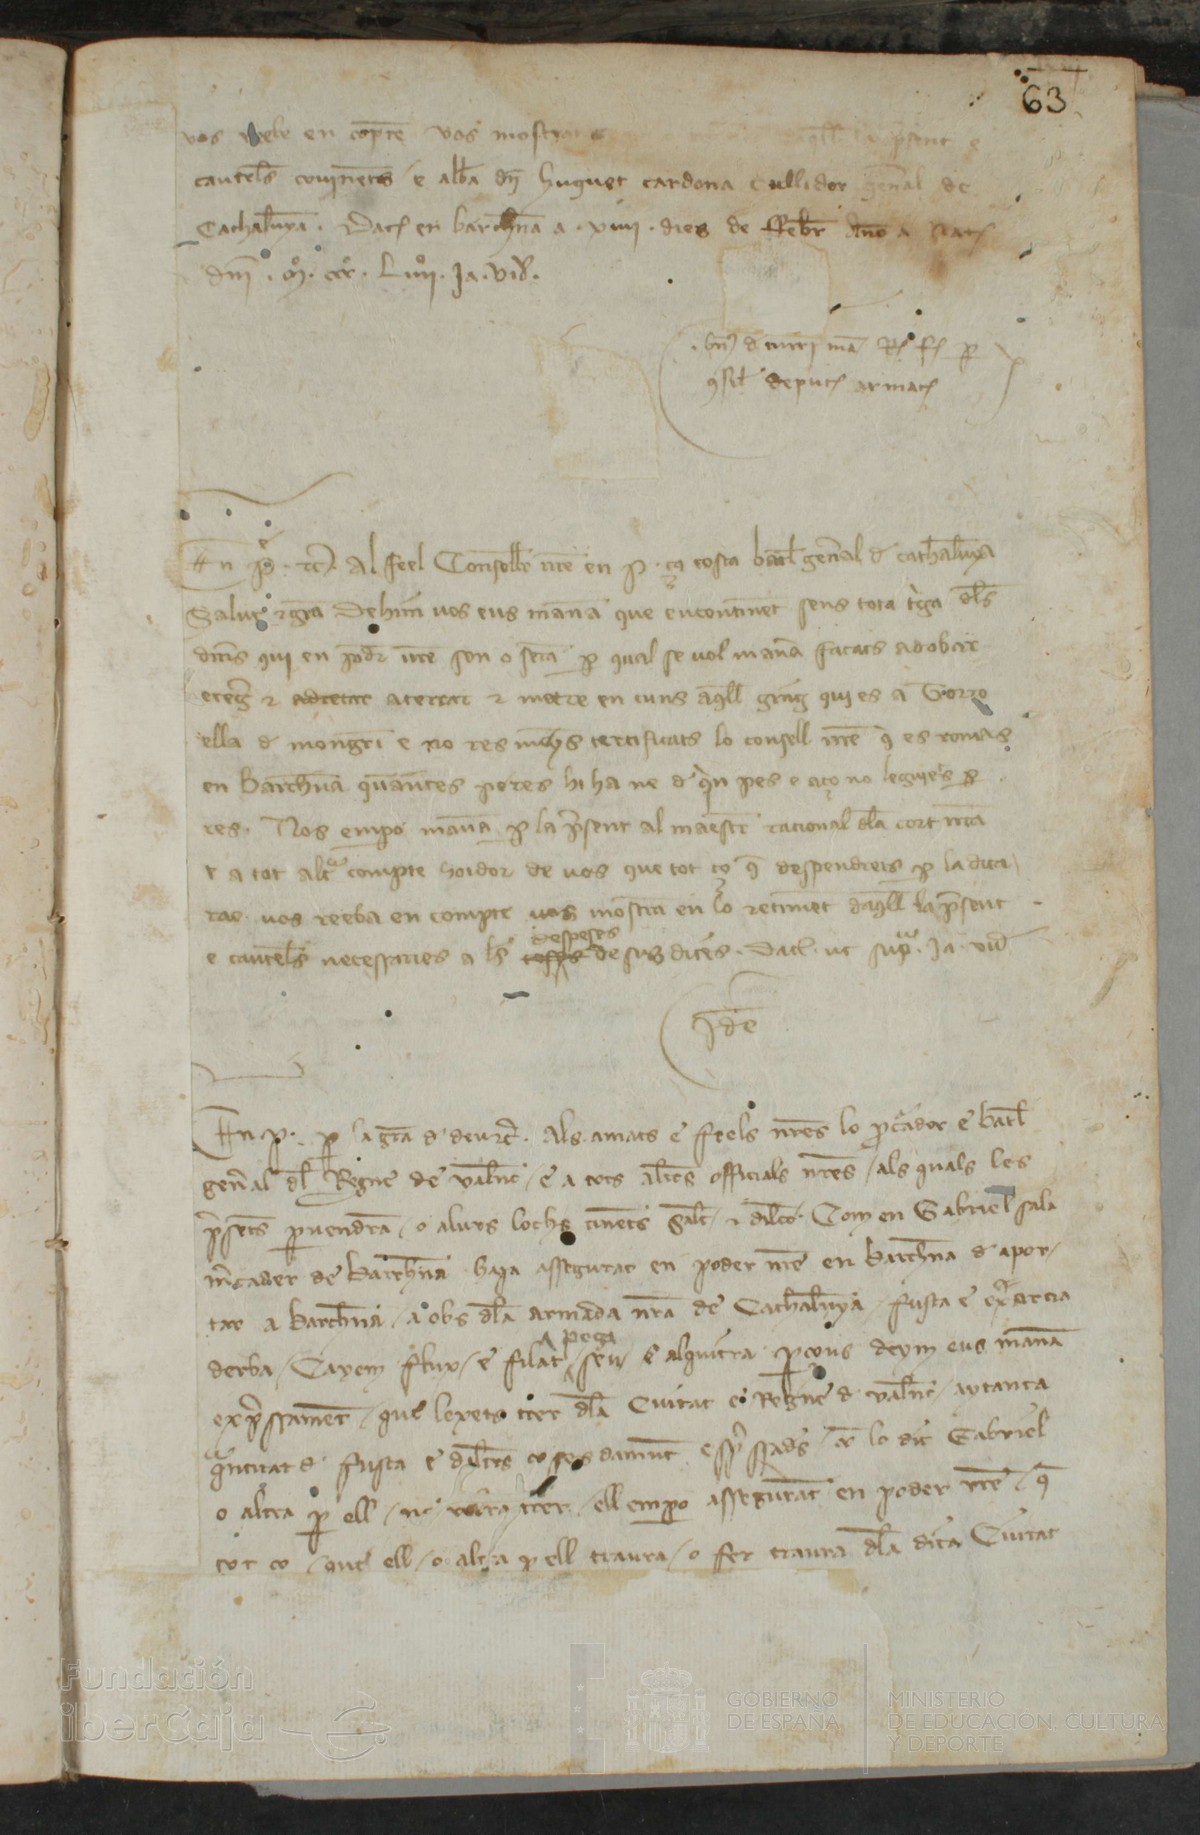 63
vos reeb en compte vos mostran
cautels covinents e alba den huguet cardona cullidor general de
Cathalunya. Dat en barchna a . xviiii . dies de ffebr Anno a Nat
dni . M. ccc. L. Ja. vid.
deput armat
En P. etc. Al feel Conseller nre en P. ça costa batl general d cathalunya
Salut e gra Dehim vos eus manam que encontinent sens tota triga dels
diners qui en poder nre son o seran p qual se vol manera façats adobar
e adretar aterrar e metre en cuns aquell giny qui es a Torro
ella d mongri e no res menys certificats lo consell nre q es romas
en Barchna quantes peres hi ha ne d quin pes e aço no lexets p
res. Nos empero manam p la present al maestre racional dla cort nra
e a tot altre compte hoidor de vos que tot ço q despendrets p la dita
rao vos reeba en compte vos mostran en lo retiment daquell la present
e cauteles necessaries a les despeses desus dites. Dat. ut supra. Ja. vid
Ide
En P. p la gra d deu etc. Als amats e feels nres lo procurador e batl
general del Regne de valnc / e a tots altres officials nres / als quals les
presents pervendran / o a lurs lochs tinents Salt e dilco. Com en Gabriel sala
mercader de Barchna haja assegurat en poder nre en barchna d apor/
tar a barchna / a obs dla armada nra de Cathalunya / fusta e exarcia
derba / Canem / e filat / pega / seu / e alquitra perçous deym eus manam
expressament / que lexets trer dla Ciutat e Regne d valnc / aytanta
quantitat d fusta e daltres coses damunt expressades / com lo dit Gabriel
o altra p ell / ne volra trer / ell empero assegurant en poder nre / q
tot ço / que ell / o altra p ell traura / o fer traura dla dita Ciutat
Fundación
iberCaja
GOBIERNO
DE ESPAÑA
MINISTERIO
DE EDUCACIÓN, CULTURA
Y DEPORTE